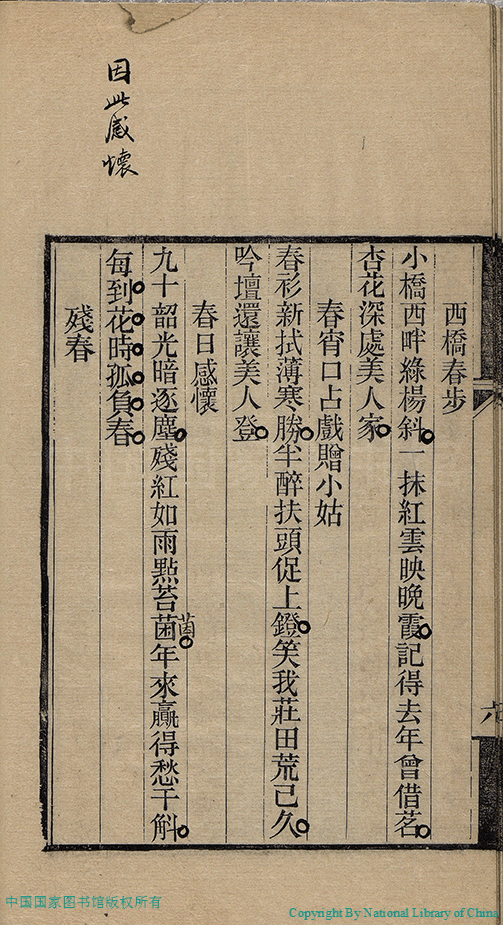 因此感懷
西橋春步
小橋西畔綠楊斜一抹紅雲映晚霞記得去年曾借茗
杏花深處美人家
春宵口占戲贈小姑
春衫新拭薄寒勝半醉扶頭促上鐙笑我莊田荒已久
吟壇還讓美人登
春日感懷
九十韶光暗逐塵殘紅如雨點苔菌年來贏得愁千斛
茵
每到花時孤負春
殘春
六
中国国家图书馆版权所有
Copyright By National Library of China